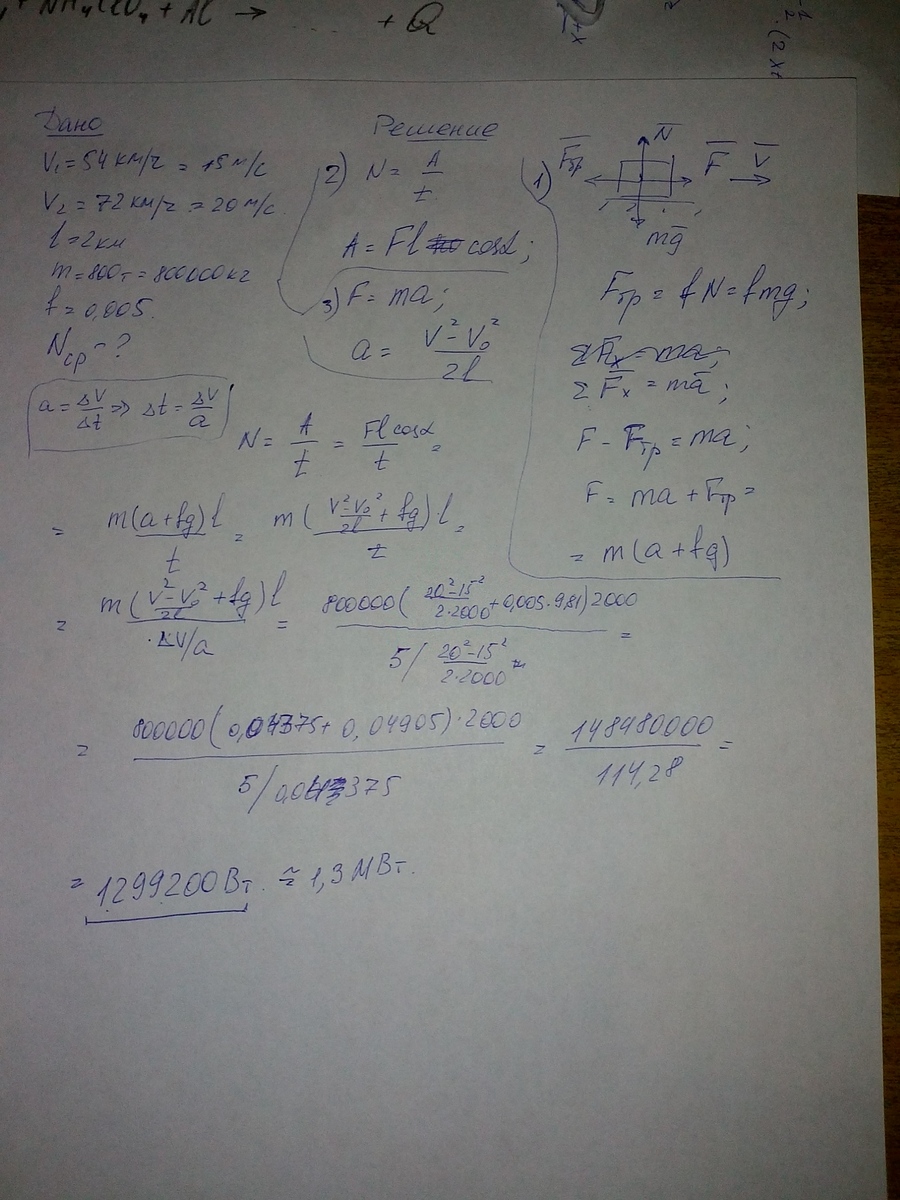 + NH₄ClO₄ + Al → ... + Q
Дано
V₁ = 54 км/ч = 15 м/с
V₂ = 72 км/ч = 20 м/с
l = 2 км
m = 800 т = 800000 кг
f = 0,005.
Nср - ?
a = ΔV/Δt => Δt = ΔV/a
Решение
1)
N̅
F̅тр
F̅
V̅
mg̅
Fтр = fN = fmg;
ΣF̅x = ma̅;
F - Fтр = ma;
F = ma + Fтр =
= m(a + fg)
2) N = A/t
A = Fl cosα;
3) F = ma;
a = (V² - V₀²)/2l
N = A/t = Fl cosα/t =
= m(a + fg)l/t = m((V² - V₀²)/2l + fg)·l/t =
= m((V² - V₀²)/2l + fg)l/(ΔV/a) = 800000((20² - 15²)/(2·2000) + 0,005·9,81)2000/(5/((20² - 15²)/(2·2000))) =
= 800000(0,04375 + 0,04905)·2000/(5/0,04375) = 148480000/114,28 =
= 1299200 Вт. ≈ 1,3 МВт.